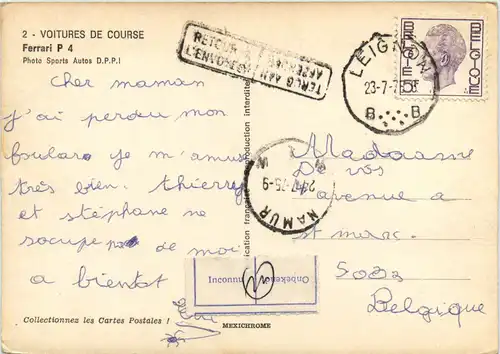 2 - VOITURES DE COURSE
Ferrari P 4
Photo Sports Autos D.P.P.I
cher maman
j'ai perdu mon
foulard je m'amuse
très bien. thierry
et stéphane ne
s'ocupe pas de moi
a bientot
Collectionnez les Cartes Postales !
MEXICHROME
RETOUR
A L'ENVOYEUR
TERUG AAN
AFZENDER
LEIGNON
23-7-75
B B
BELGIE 5F BELGIQUE
NAMUR
75-9
M M
Madaame
De vos
1 avenue a
st marc.
5000
Belgique
Onbekend
Inconnu